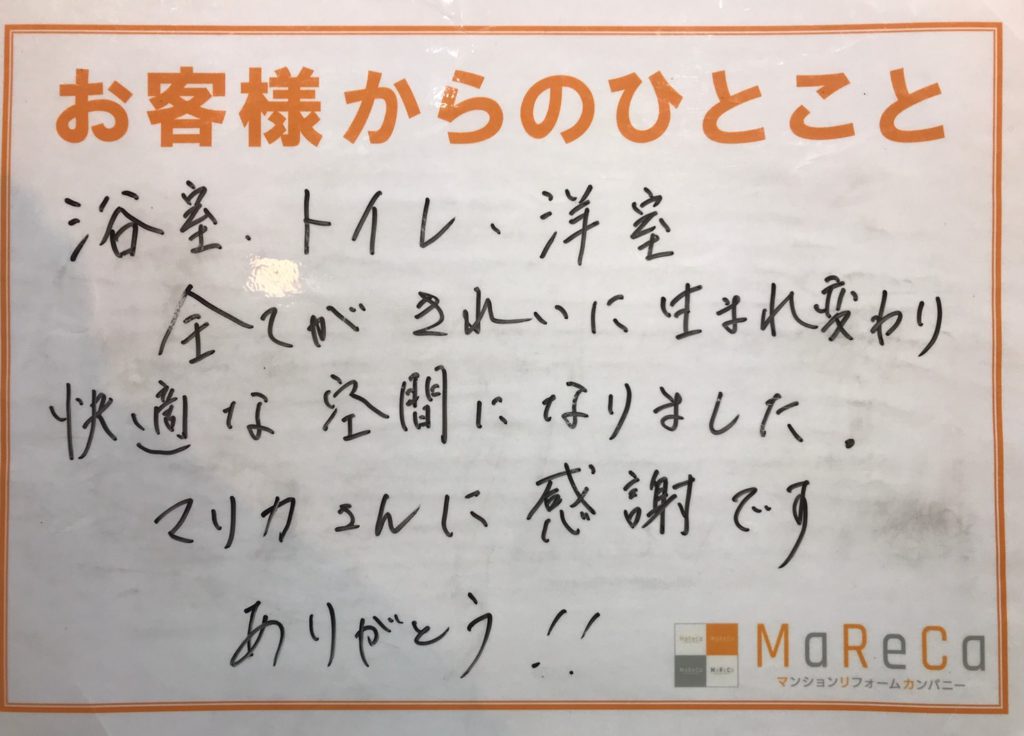 お客様からのひとこと
浴室、トイレ、洋室
全てがきれいに生まれ変わり
快適な空間になりました.
マリカさんに感謝です
ありがとう!!
MaReCa
マンションリフォームカンパニー